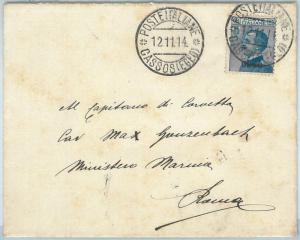 POSTE ITALIANE
12.11.14
CASSOS (EGEO)
POSTE ITALIANE
Al Capitano di Corvetta
Cav Max Gunzenbach
Ministero Marina
Roma